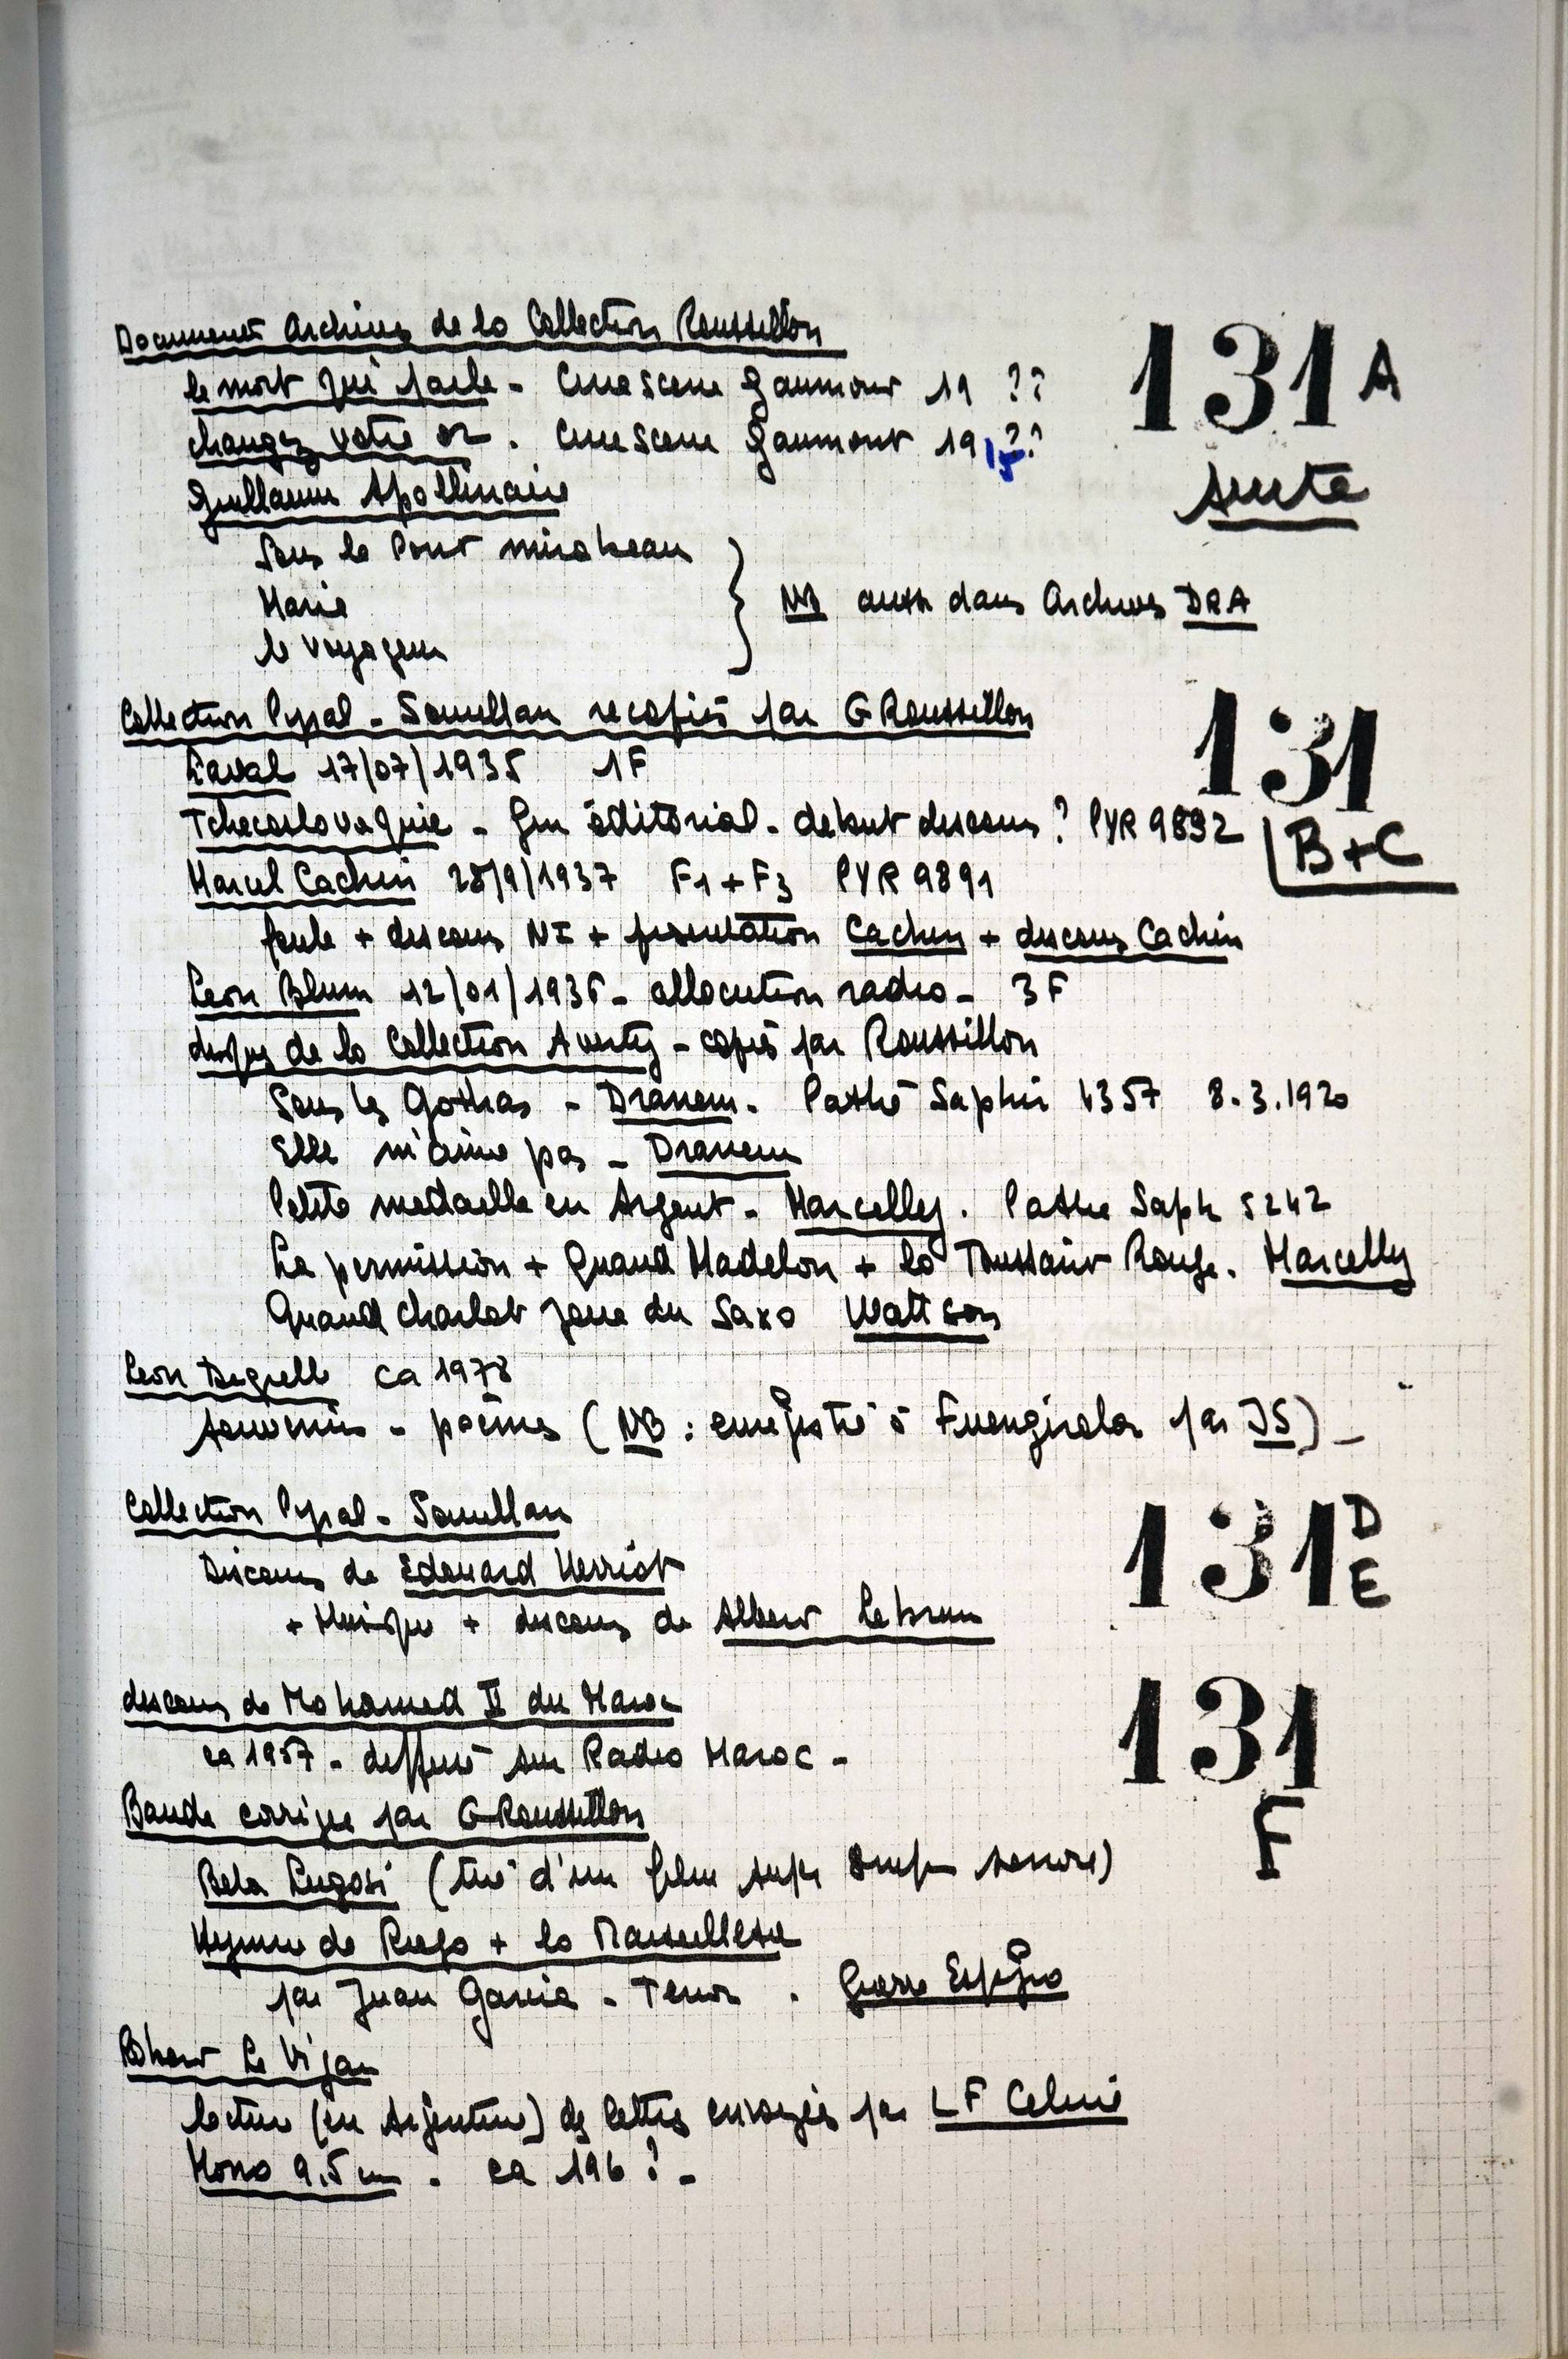 Documents Archives de la Collection Roussillon
131 A
le mort qui parle - Cinescene Gaumont 19 ??
changez votre or. Cinescene Gaumont 19 15 ??
suite
Guillaume Apollinaire
Sous le Pont mirabeau
Marie
le voyageur
NB aussi dans Archives DRA
Collection Pyral - Soumillan recopiés par G Roussillon
131
B+C
Laval 17/07/1935 1F
Tchecoslovaquie - editorial - debut discours ? PYR 9892
Marcel Cachin 28/9/1937 F1 + F3 PYR 9891
foule + discours NI + presentation Cachin + discours Cachin
Leon Blum 12/01/1936 - allocution radio - 3F
disques de la Collection Averty - copiés par Roussillon
Sous les Gothas - Dranem. Pathé Saphir 4357 8.3.1920
Elle m'aime pas - Dranem
Petite medaille en Argent - Marcelly. Pathe Saph 5242
La permission + Quand Madelon + la Toussaint Rouge. Marcelly
Quand charlot joue du Saxo Wattson
Leon Degrelle ca 1978
souvenirs - poèmes (NB : enregistré à Fuengirola par JS) -
Collection Pyral - Soumillan
131 D E
Discours de Edouard Herriot
+ Musique + discours de Albert Lebrun
discours de Mohamed II du Maroc
131
F
ca 1957 - diffusé sur Radio Maroc -
Bande corrigée par G Roussillon
Bela Lugosi (tiré d'un film super 8 sonore)
Hymne de Riego + la Marseillaise
par Juan Garcia - Tenor. Guerre Espagne
Robert Le Vigan
lecture (en Argentine) de lettres envoyées par LF Celine
Mono 9,5 cm. ca 196 ? -